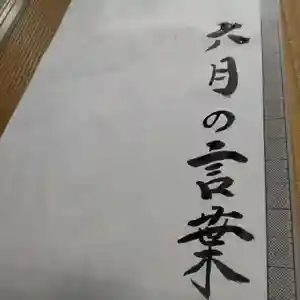 六月の言葉